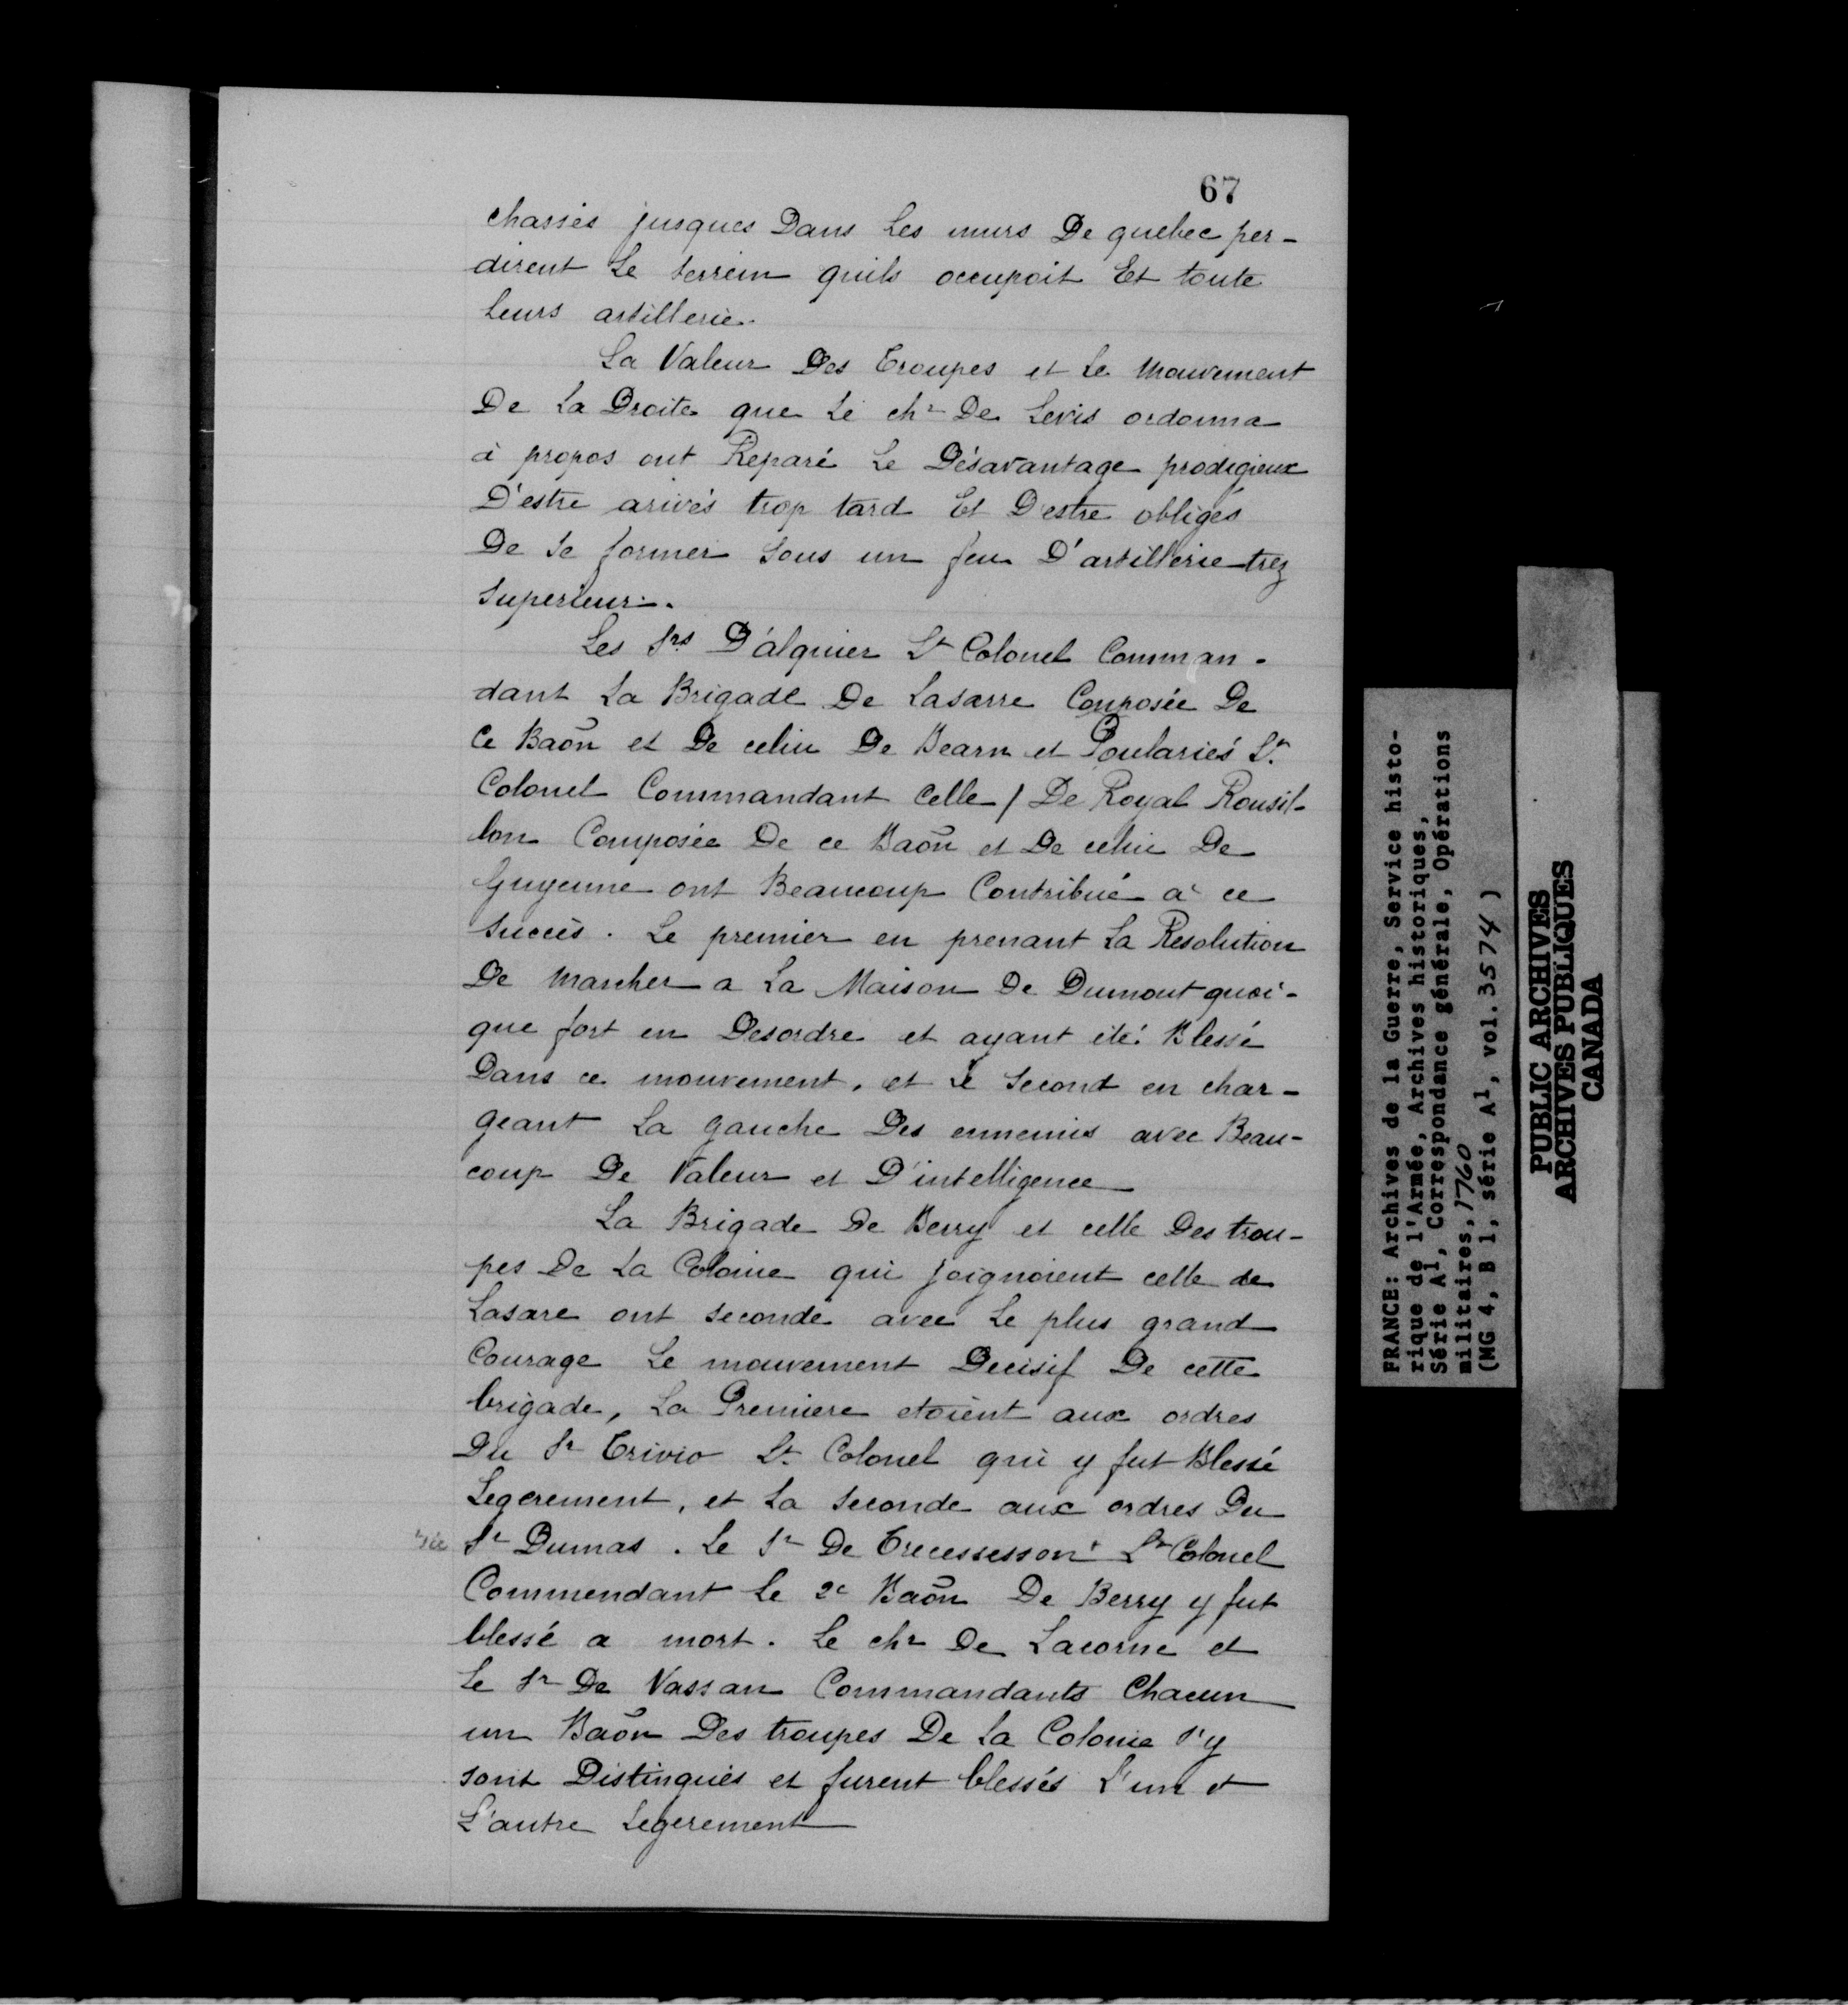 67
chassés jusques Dans Les murs De quebec per-
dirent Le terrein quils occupoit Et toute
Leurs artillerie.
La Valeur Des Troupes et Le Mouvement
De La Droite que Le chr De Levis ordonna
à propos ont Reparé Le Désavantage prodigieux
D'estre arivés trop tard Et D'estre obligés
De Se former Sous un feu D'artillerie trez
Superieur.
Les Srs D'alquier Lt Colonel Comman-
dant La Brigade De Lasarre Composée De
Ce Baõn et De celui De Bearn et Poulariés Lt
Colonel Commandant Celle / De Royal Rousil-
lon Composée De ce Baõn et De celui De
Guyenne ont Beaucoup Contribué à ce
Succès. Le premier en prenant La Resolution
De Marcher a La Maison De Dumont quoi-
que fort en Desordre et ayant été Blessé
Dans ce mouvement, et Le Second en char-
geant La gauche Des ennemis avec Beau-
coup De Valeur et D'intelligence
La Brigade De Berry et celle Des trou-
pes De La Colonie qui joignoient celle de
Lasare ont Secondé avec Le plus grand
Courage Le mouvement Decisif De cette
brigade, La Premiere etoient aux ordres
Du Sr Trivio Lt Colonel qui y fut Blessé
Legerement, et La Seconde aux ordres Du
sic Sr Dumas. Le Sr De Trecessesson Lt Colonel
Commendant Le 2e Baõn De Berry y fut
blessé a mort. Le chr De Lacorne et
Le Sr De Vassan Commandants Chacun
un Baõn Des troupes De La Colonie S'y
sont Distingués et furent blessés L'un et
L'autre Legerement
FRANCE: Archives de la Guerre, Service histo-
rique de l'Armée, Archives historiques,
Série A1, Correspondance générale, Opérations
militaires, 1760
(MG 4, B 1, série A1, vol. 3574)
PUBLIC ARCHIVES
ARCHIVES PUBLIQUES
CANADA